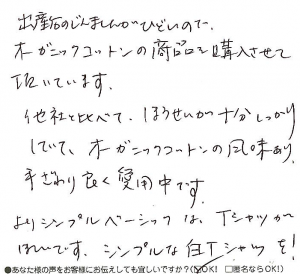 出産後のじんましんがひどいので、
オーガニックコットンの商品を購入させて
頂いています。
他社と比べて、ほうせいが十分しっかり
していて、オーガニックコットンの風味あり、
手ざわり良く愛用中です。
よりシンプルベーシックな、Tシャツが
ほしいです。シンプルな白Tシャツを!
●あなた様の声をお客様にお伝えしても宜しいですか?(☑OK! □匿名ならOK!)